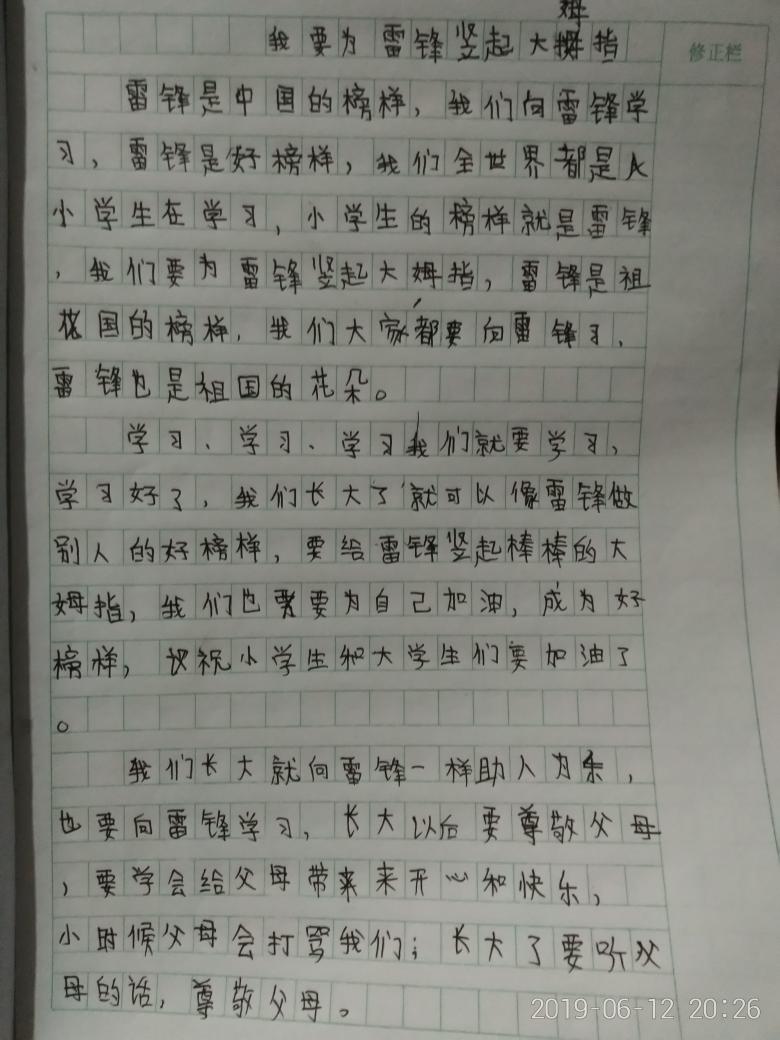 姆
我要为雷锋竖起大拇指
修正栏
雷锋是中国的榜样，我们向雷锋学
习，雷锋是好榜样，我们全世界都是
小学生在学习，小学生的榜样就是雷锋
，我们要为雷锋竖起大姆指，雷锋是祖
国的榜样，我们大家都要向雷锋习，
雷锋也是祖国的花朵。
学习、学习、学习我们就要学习，
学习好了，我们长大了就可以像雷锋做
别人的好榜样，要给雷锋竖起棒棒的大
姆指，我们也要为自己加油，成为好
榜样，祝小学生和大学生们要加油了
。
我们长大就向雷锋一样助人为乐，
也要向雷锋学习，长大以后要尊敬父母
，要学会给父母带来来开心和快乐，
小时候父母会打骂我们；长大了要听父
母的话，尊敬父母。
2019-06-12 20:26